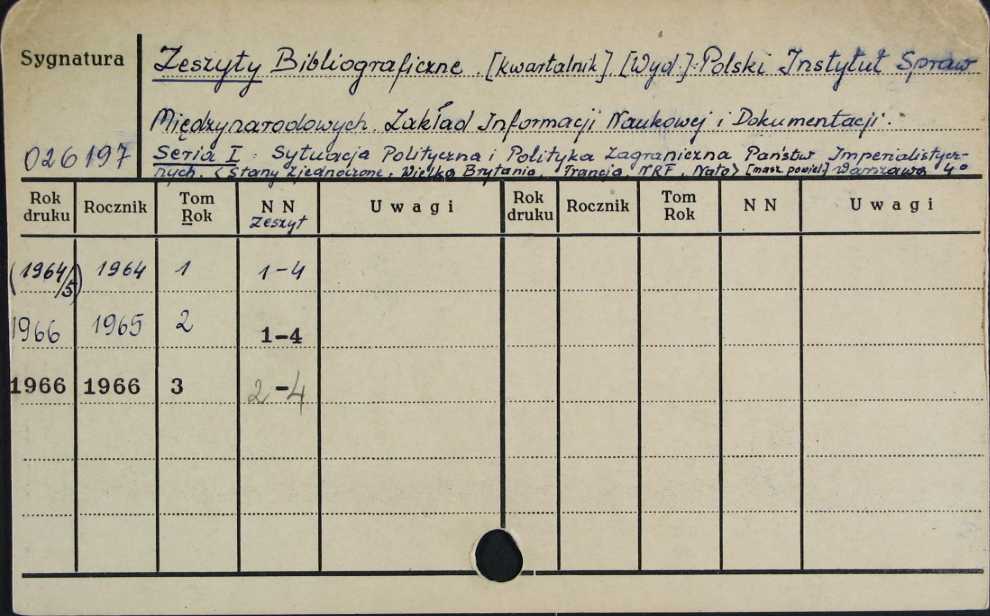 Sygnatura Zeszyty Bibliograficzne [kwartalnik]. [Wyd.]: Polski Instytut Spraw
Międzynarodowych. Zakład Informacji Naukowej i Dokumentacji.
026197 Seria I: Sytuacja Polityczna i Polityka Zagraniczna Państw Imperialistycz-
nych. (Stany Zjednoczone, Wielka Brytania, Francja, NRF, Nato) [masz. powiel.] Warszawa 4°
Rok druku Rocznik Tom Rok NN Zeszyt Uwagi Rok druku Rocznik Tom Rok NN Uwagi
(1964/5) 1964 1 1-4
1966 1965 2 1-4
1966 1966 3 2-4